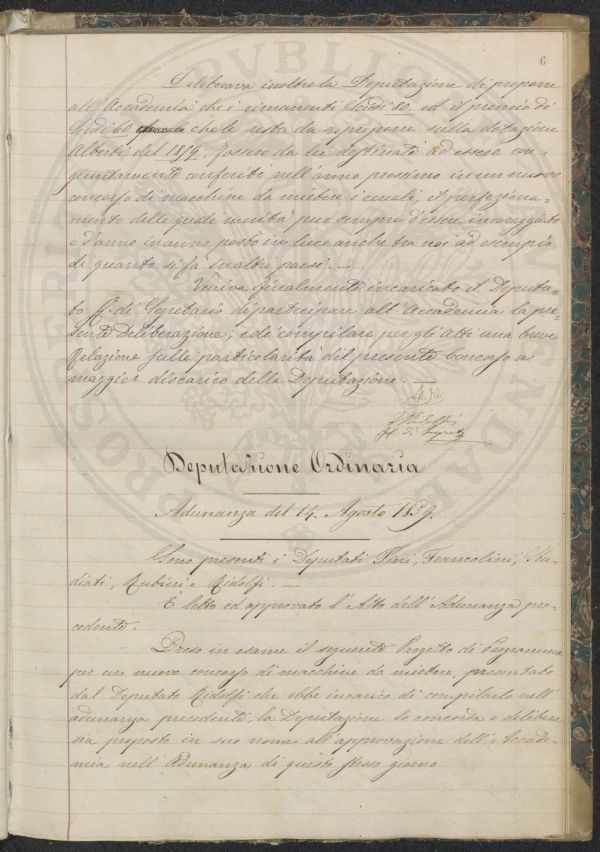 6
Deliberava inoltre la Deputazione di proporre
all'Accademia che i rimanenti Scudi 80, ed il premio di
Scudi 60 che le resta da riproporre sulla dotazione
Alberti del 1859, fossero da lei destinati ad essere con-
giuntamente conferiti nell'anno prossimo in un nuovo
concorso di macchine da mietere i cereali, il perfeziona-
mento delle quali merita pur sempre d'essere incoraggiato
e d'anno in anno posto in luce anche tra noi ad esempio
di quanto si fà in altri paesi. —
Veniva finalmente incaricato il Deputa-
to ff. di Segretario di partecipare all'Accademia la pre-
sente Deliberazione, e di compilare per gli Atti una breve
Relazione sulle particolarità del presente Concorso a
maggiore discarico della Deputazione. —
Ridolfi
ff. di Segret.
Deputazione Ordinaria
Adunanza del 14. Agosto 1859.
Sono presenti i Deputati Pini, Francolini, Stu-
diati, Rubieri e Ridolfi. —
È letto ed approvato l'Atto dell'Adunanza pre-
cedente.
Preso in esame il seguente Progetto di Programma
per un nuovo concorso di macchine da mietere, presentato
dal Deputato Ridolfi che ebbe incarico di compilarlo nell'
adunanza precedente, la Deputazione lo concorda e delibera
sia proposto in suo nome all'approvazione dell'Accade-
mia nell'Adunanza di questo stesso giorno